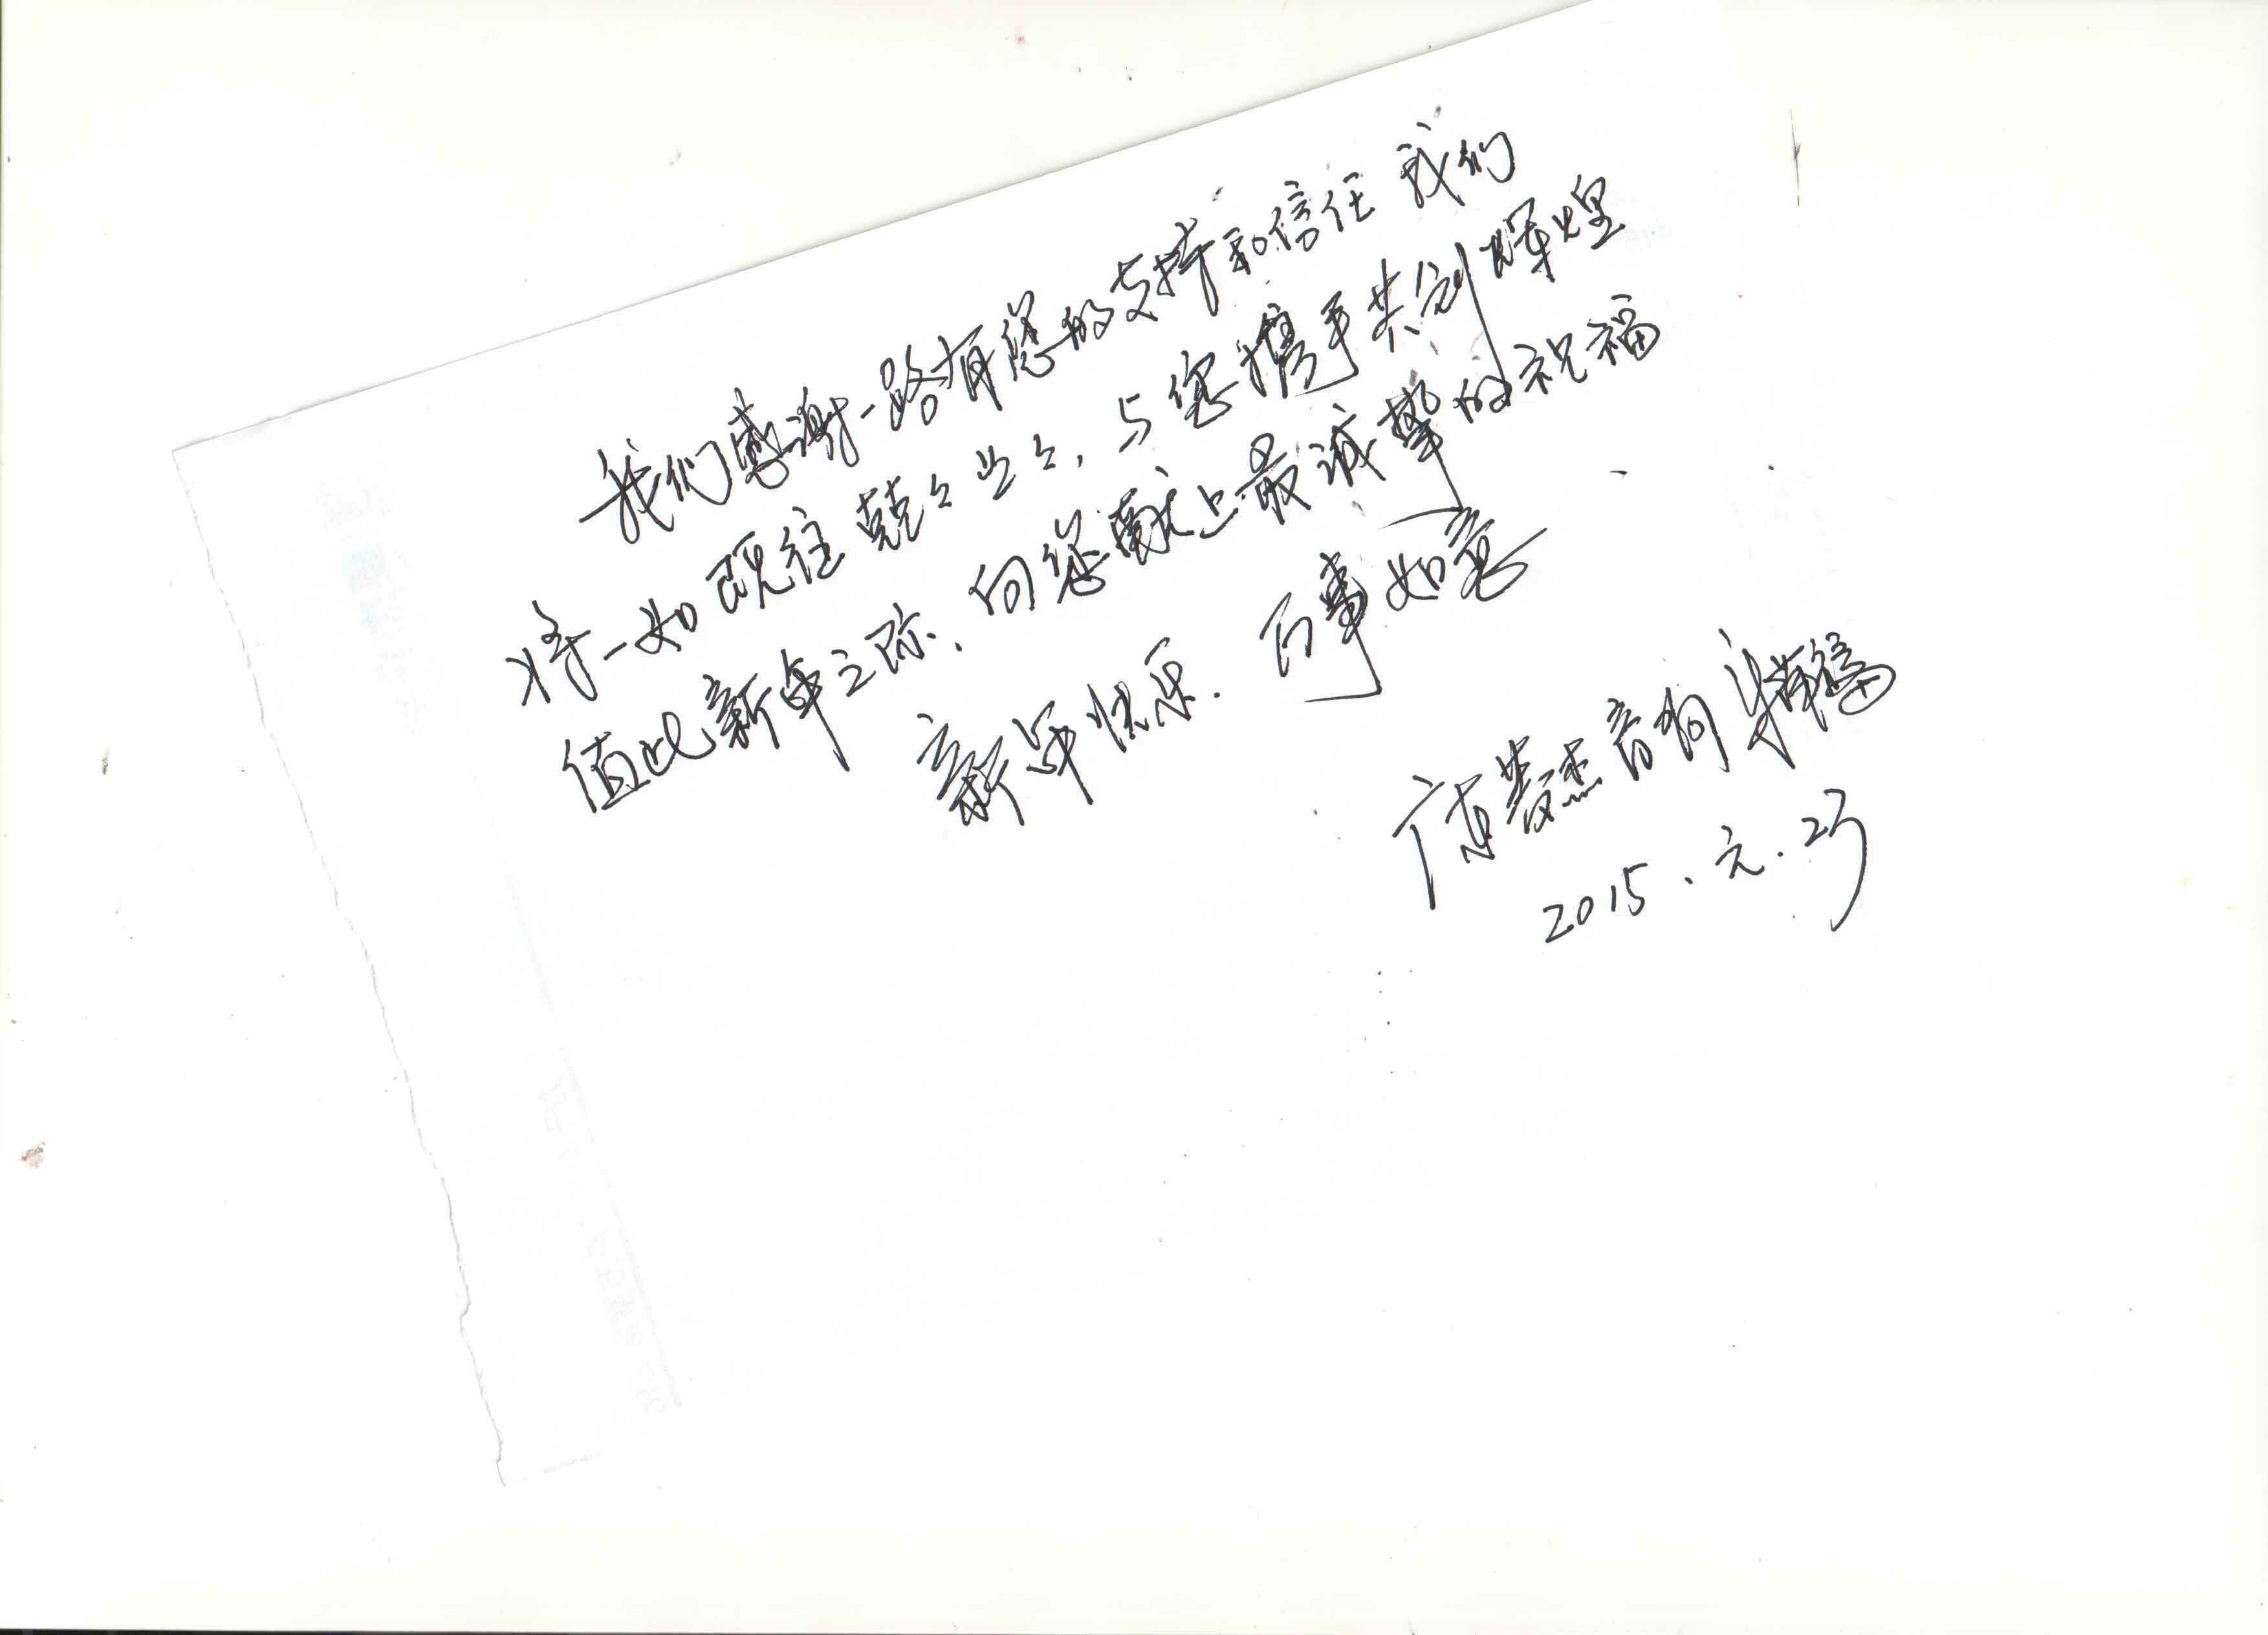 我们感谢一路有您的支持和信任 我们
将一如既往兢々业々，与您携手共创辉煌
值此新年之际、向您献上最诚挚的祝福
新年快乐．百事如意
2015、元．23